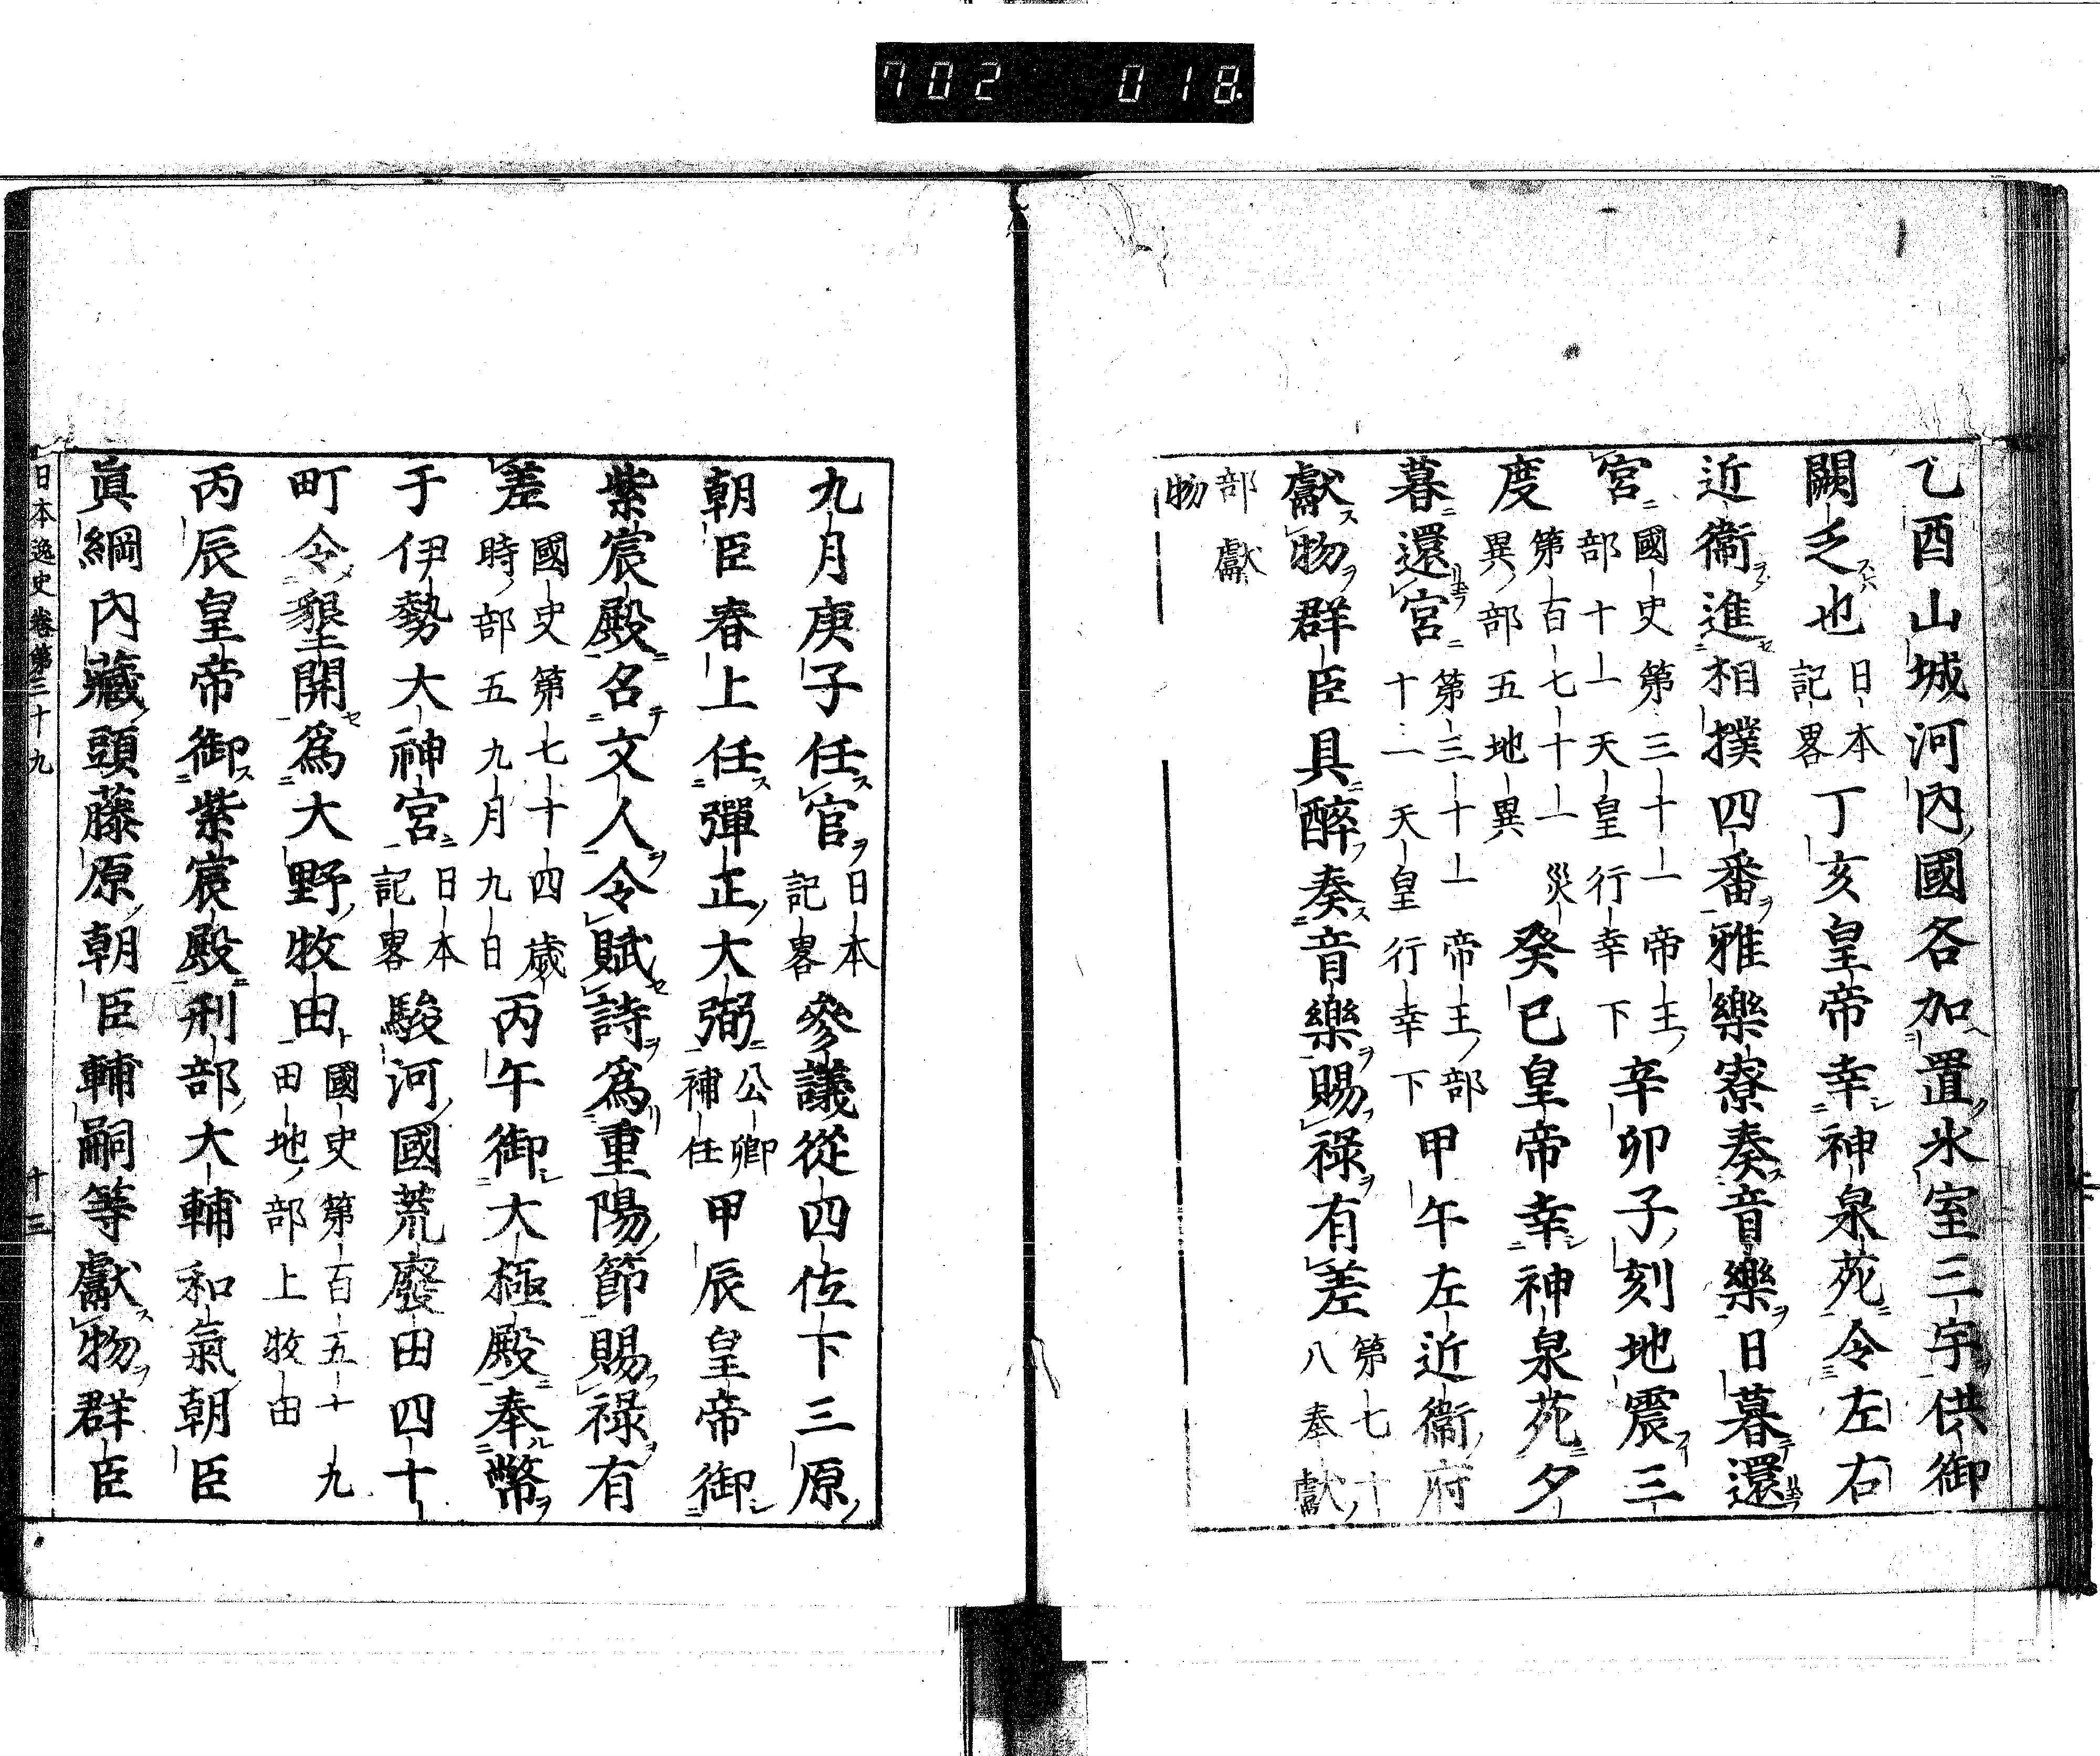 702 018
乙酉山城河內國各加置氷室三宇供御
闕乏也日本記畧丁亥皇帝幸神泉苑令左右
近衞進相撲四番雅樂寮奏音樂日暮還
宮國史第三十一帝王部十一天皇行幸下辛卯子刻地震三
度第百七十一災異部五地異癸巳皇帝幸神泉苑夕
暮還宮第三十一帝王部十一天皇行幸下甲午左近衞府
獻物群臣具醉奏音樂賜祿有差第七十八奉獻
部獻物
九月庚子任官日本記畧參議從四位下三原
朝臣春上任彈正大弼公卿補任甲辰皇帝御
紫宸殿名文人令賦詩爲重陽節賜祿有
差國史第七十四歲時部五九月九日丙午御大極殿奉幣
于伊勢大神宮日本記畧駿河國荒廢田四十
町令墾開爲大野牧田國史第百五十九田地部上牧田
丙辰皇帝御紫宸殿刑部大輔和氣朝臣
眞綱內藏頭藤原朝臣輔嗣等獻物群臣
日本逸史卷第三十九 十三